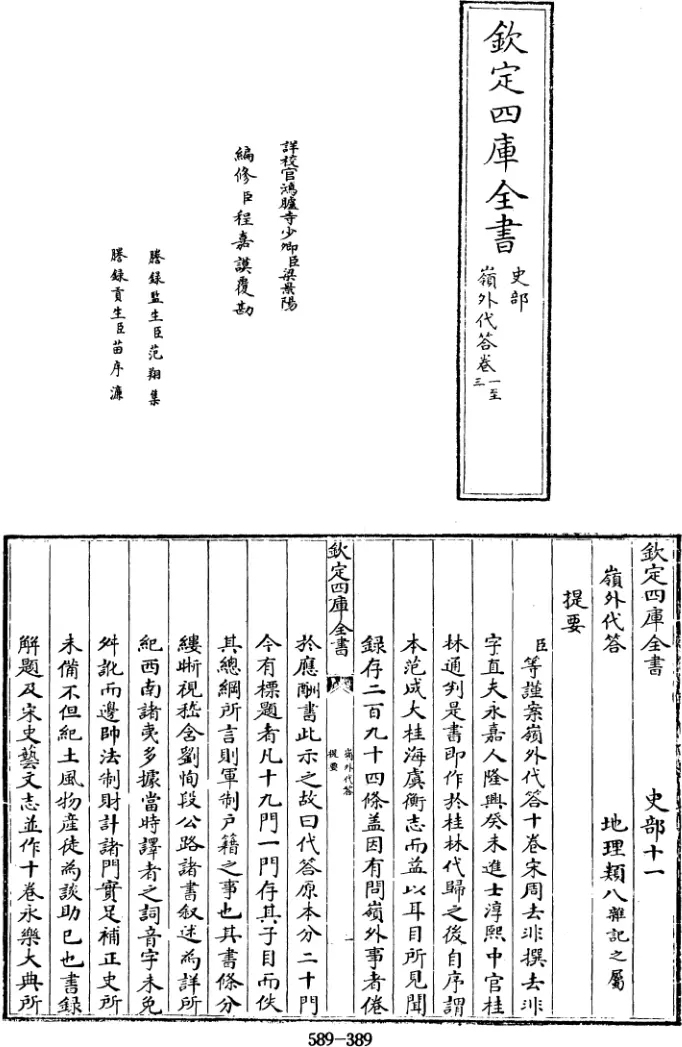 欽定四庫全書
史部
嶺外代答卷一至三
詳校官鴻臚寺少卿臣梁景陽
編修臣程嘉謨覆勘
謄録監生臣范翔集
謄録貢生臣苗序濂
欽定四庫全書 史部十一
嶺外代答 地理類八雜記之屬
提要
臣等謹案嶺外代答十卷宋周去非撰去非
字直夫永嘉人隆興癸未進士淳熙中官桂
林通判是書即作於桂林代歸之後自序謂
本范成大桂海虞衡志而益以耳目所見聞
録存二百九十四條盖因有問嶺外事者倦
欽定四庫全書 嶺外代答 提要 一
於應酬書此示之故曰代答原本分二十門
今有標題者凡十九門一門存其子目而佚
其總綱所言則軍制户籍之事也其書條分
縷晰視嵇含劉恂段公路諸書叙述為詳所
紀西南諸夷多據當時譯者之詞音字未免
舛訛而邊帥法制財計諸門實足補正史所
未備不但紀土風物産徒為談助已也書録
解題及宋史藝文志並作十卷永樂大典所
589-389